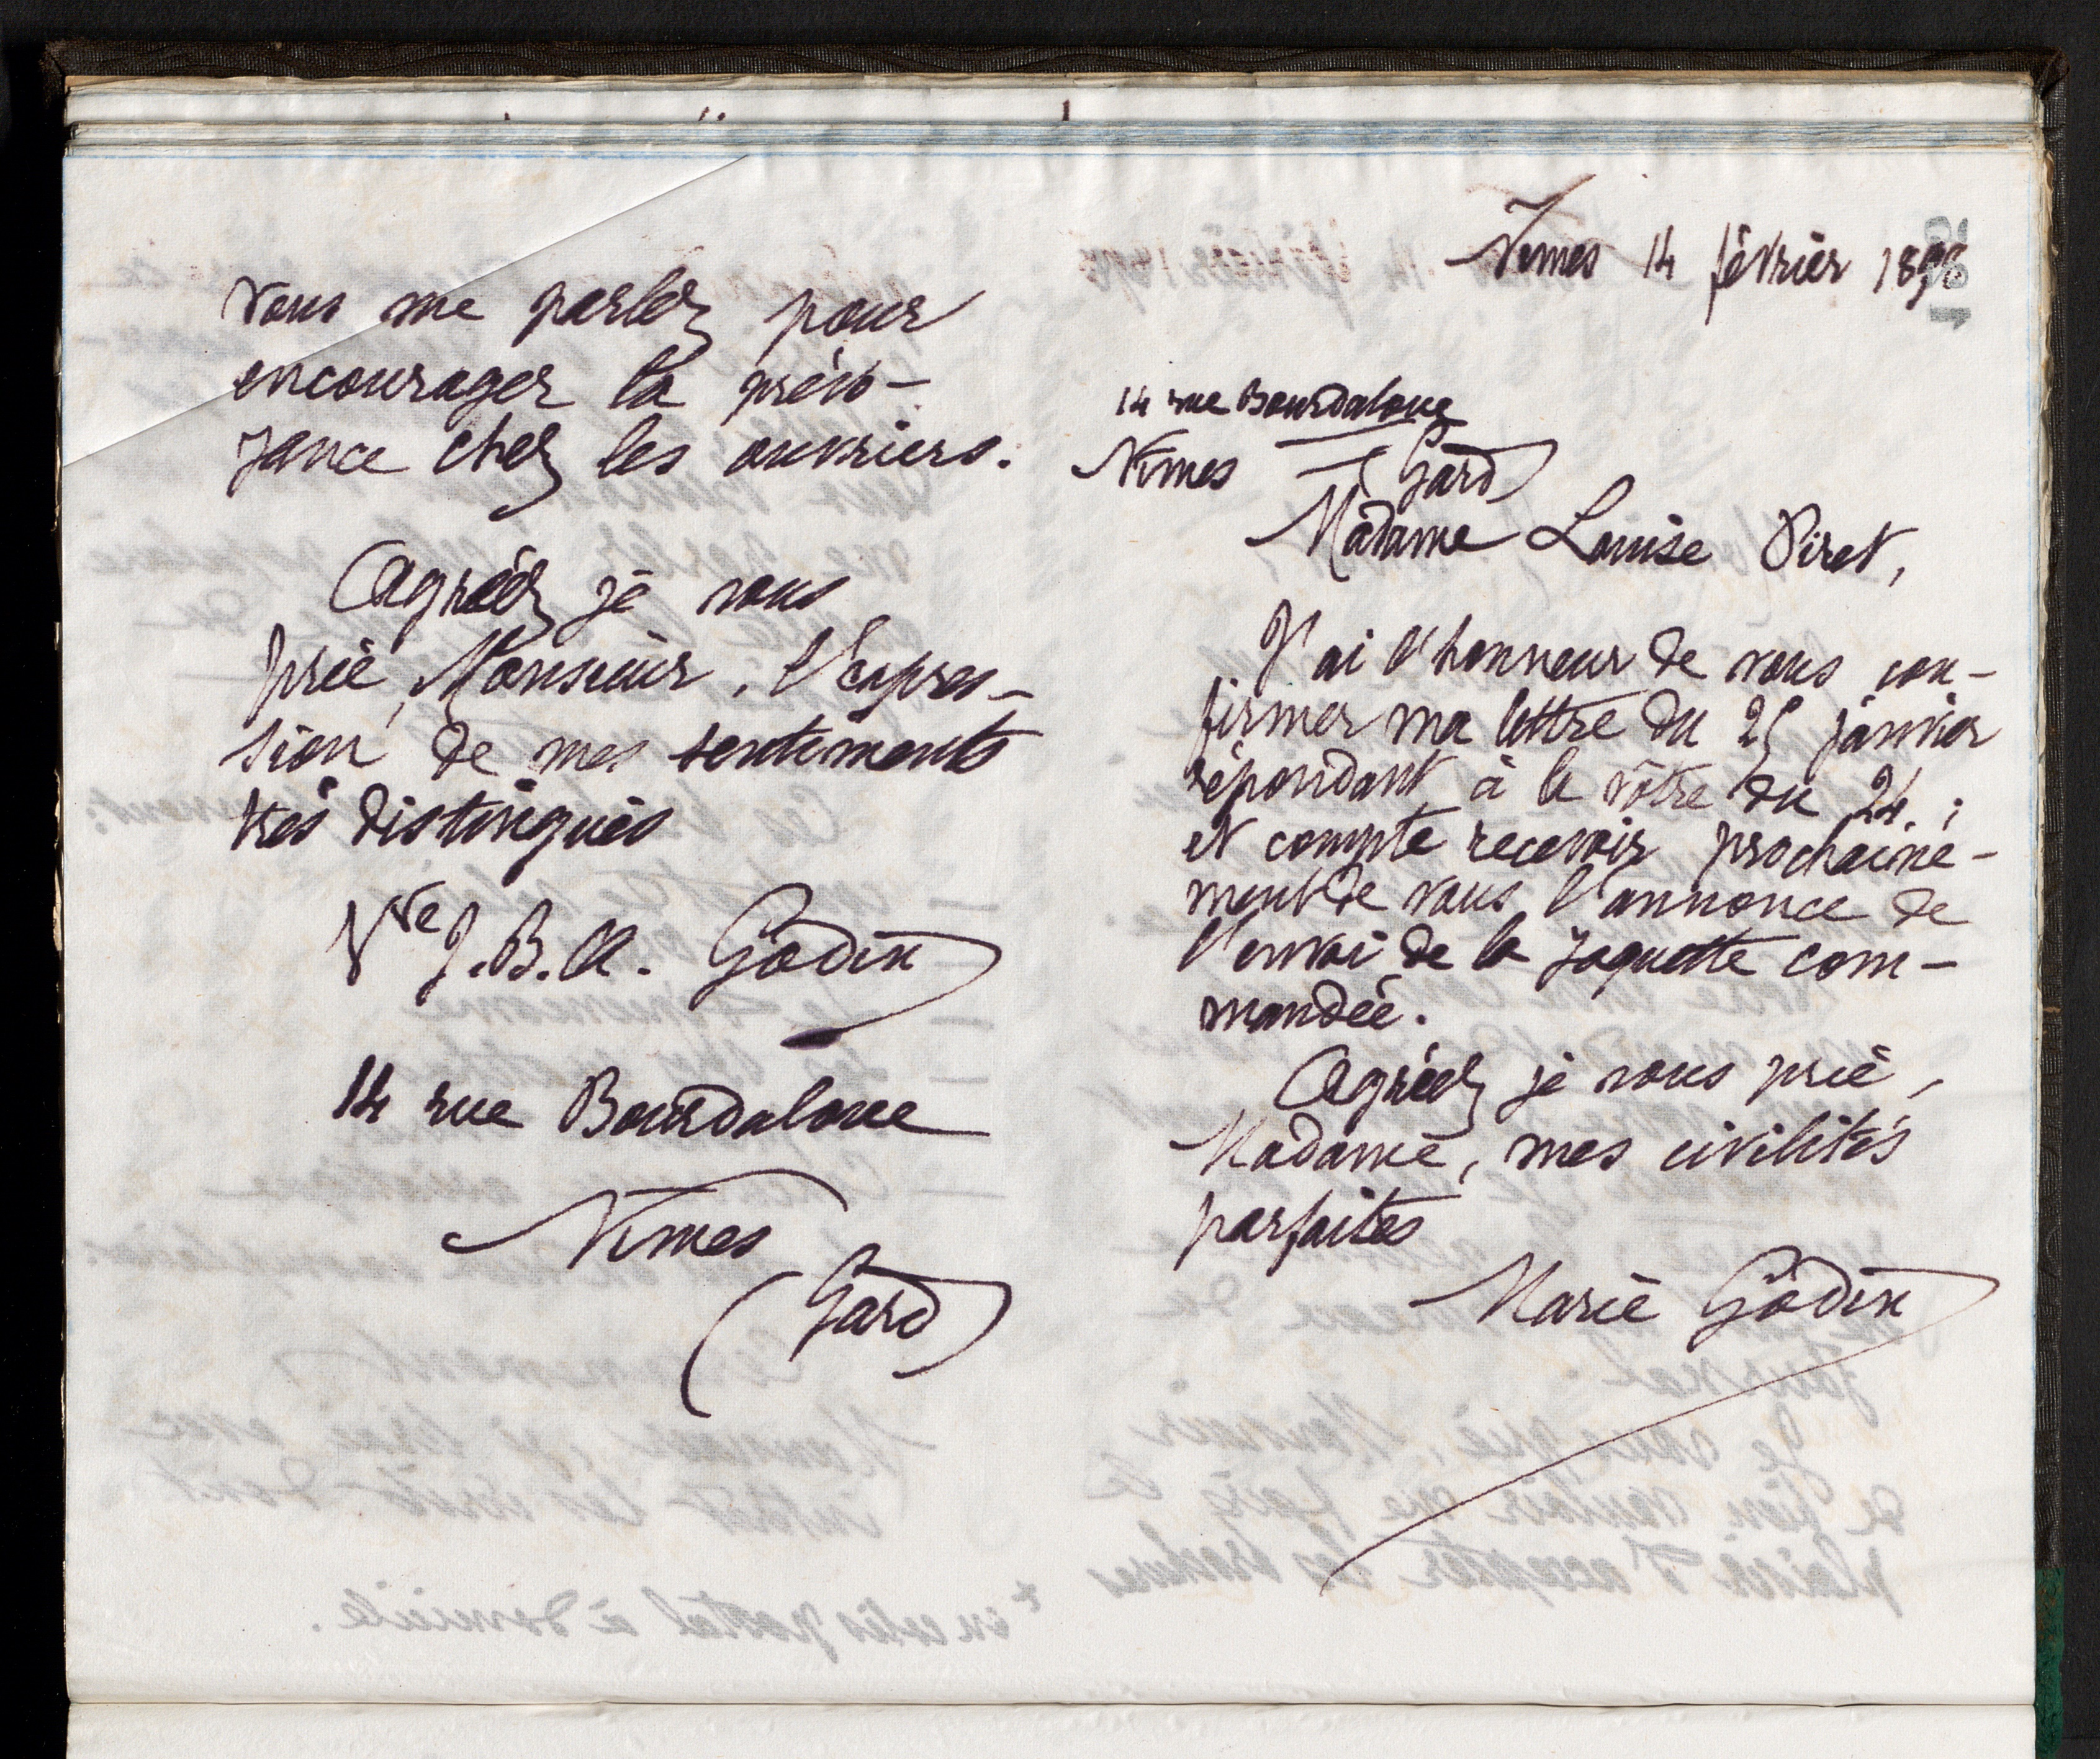 vous me parlez pour
encourager la prévo-
yance chez les ouvriers.
Agréez je vous
prie, Monsieur, l'expres-
sion de mes sentiments
très distingués
Vve J. B. A. Godin
14 rue Bourdaloue
Nîmes
(Gard)
Nîmes 14 février
14 rue Bourdaloue
Nîmes Gard
Madame Louise Piret,
J'ai l'honneur de vous con-
firmer ma lettre du 25 janvier
répondant à la vôtre du 24 ;
et compte recevoir prochaine-
ment de vous l'annonce de
l'envoi de la jaquette com-
mandée.
Agréez je vous prie,
Madame, mes civilités
parfaites
Marie Godin